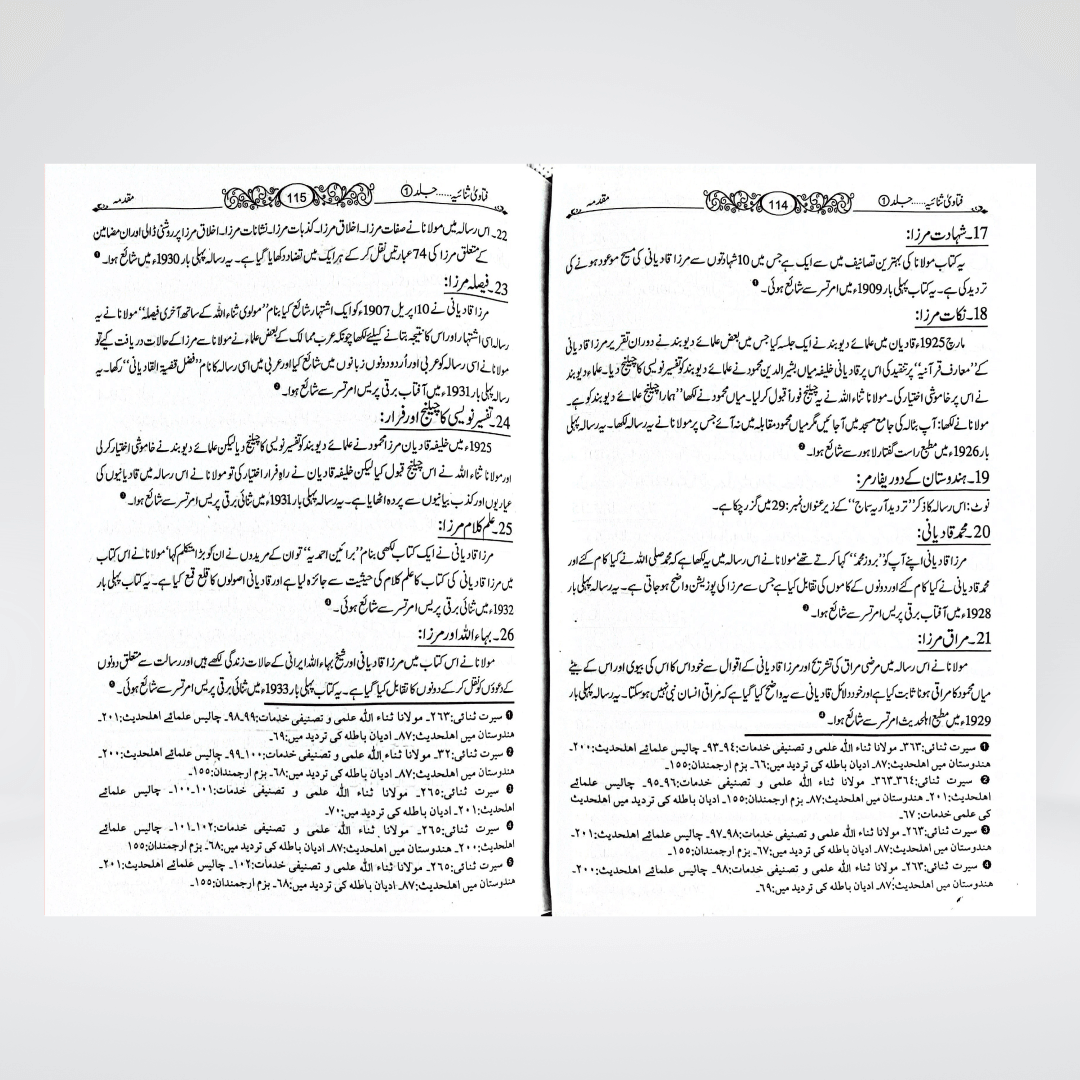 فتاویٰ ثنائیہ......جلد ①
114
مقدمہ
17۔شہادت مرزا:
یہ کتاب مولانا کی بہترین تصانیف میں سے ایک ہے جس میں 10 شہادتوں سے مرزا قادیانی کی مسیح موعود ہونے کی
تردید کی ہے۔ یہ کتاب پہلی بار 1909ء میں امرتسر سے شائع ہوئی۔ ❶
18۔نکات مرزا:
مارچ 1925ء قادیان میں علمائے دیوبند نے ایک جلسہ کیا جس میں بعض علمائے دیوبند نے دوران تقریر مرزا قادیانی
کے ”معارف قرآنیہ“ پر تنقید کی اس پر قادیانی خلیفہ میاں بشیر الدین محمود نے علمائے دیوبند کو تفسیر نویسی کا چیلنج دیا۔ علماء دیوبند
نے اس پر خاموشی اختیار کی۔ مولانا ثناء اللہ نے یہ چیلنج فوراً قبول کرلیا۔ میاں محمود نے لکھا ”ہمارا چیلنج علمائے دیوبند کو ہے۔
مولانا نے لکھا: آپ بٹالہ کی جامع مسجد میں آجائیں مگر میاں محمود مقابلہ میں نہ آئے جس پر مولانا نے یہ رسالہ لکھا۔ یہ رسالہ پہلی
بار 1926ء میں مطبع راست گفتار لاہور سے شائع ہوا۔ ❷
19۔ہندوستان کے دو ریفارمر:
نوٹ: اس رسالہ کا ذکر ”تردید آریہ سماج“ کے زیر عنوان نمبر: 29 میں گزر چکا ہے۔
20۔محمد قادیانی:
مرزا قادیانی اپنے آپ کو ”بروز محمد“ کہا کرتے تھے مولانا نے اس رسالہ میں یہ لکھا ہے کہ محمد صلی اللہ نے کیا کام کئے اور
محمد قادیانی نے کیا کام کئے اور دونوں کے کاموں کی تقابل کیا ہے جس سے مرزا کی پوزیشن واضح ہو جاتی ہے۔ یہ رسالہ پہلی بار
1928ء میں آفتاب برقی پریس امرتسر سے شائع ہوا۔ ❸
21۔مراق مرزا:
مولانا نے اس رسالہ میں مرضی مراق کی تشریح اور مرزا قادیانی کے اقوال سے خود اس کا اس کی بیوی اور اس کے بیٹے
میاں محمود کا مراقی ہونا ثابت کیا ہے اور خود دلائل قادیانی سے یہ واضح کیا گیا ہے کہ مراقی انسان نبی نہیں ہوسکتا۔ یہ رسالہ پہلی بار
1929ء میں مطبع اہلحدیث امرتسر سے شائع ہوا۔ ❹
❶ سیرت ثنائی:٣٦٣۔ مولانا ثناء اللہ علمی و تصنیفی خدمات:٩٤-٩٣۔ چالیس علمائے اهلحدیث:٢٠٠۔
هندوستان میں اهلحدیث:٨٧۔ ادیان باطله کی تردید میں:٦٦۔ بزم ارجمندان:١٥٥۔
❷ سیرت ثنائی:٣٦٤-٣٦٣۔ مولانا ثناء اللہ علمی و تصنیفی خدمات:٩٦-٩٥۔ چالیس علمائے
اهلحدیث:٢٠١۔ هندوستان میں اهلحدیث:٨٧۔ بزم ارجمندان:١٥٥۔ ادیان باطله کی تردید میں اهلحدیث
کی علمی خدمات:٦٧۔
❸ سیرت ثنائی:٢٦٣۔ مولانا ثناء اللہ علمی و تصنیفی خدمات:٩٨-٩٧۔ چالیس علمائے اهلحدیث:٢٠١۔
هندوستان میں اهلحدیث:٨٧۔ ادیان باطله کی تردید میں:٦٧۔ بزم ارجمندان:١٥٥۔
❹ سیرت ثنائی:٢٦٣۔ مولانا ثناء اللہ علمی و تصنیفی خدمات:٩٨۔ چالیس علمائے اهلحدیث:٢٠٠۔
هندوستان میں اهلحدیث:٨٧۔ ادیان باطله کی تردید میں:٦٩۔
فتاویٰ ثنائیہ......جلد ①
115
مقدمہ
22۔ اس رسالہ میں مولانا نے صفات مرزا۔ اخلاق مرزا۔ کذبات مرزا۔ نشانات مرزا۔ اخلاق مرزا پر روشنی ڈالی اور ان مضامین
کے متعلق مرزا کی 74 عبارتیں نقل کر کے ہر ایک میں تضاد دکھایا گیا ہے۔ یہ رسالہ پہلی بار 1930ء میں شائع ہوا۔ ❶
23۔فیصلہ مرزا:
مرزا قادیانی نے 10 اپریل 1907ء کو ایک اشتہار شائع کیا بنام ”مولوی ثناء اللہ کے ساتھ آخری فیصلہ“ مولانا نے یہ
رسالہ اسی اشتہار اور اس کا نتیجہ بتانے کیلئے لکھا چونکہ عرب ممالک کے بعض علماء نے مولانا سے مرزا کے حالات دریافت کیے تو
مولانا نے اسی رسالہ کو عربی اور اُردو دونوں زبانوں میں شائع کیا اور عربی میں اسی رسالہ کا نام ”فضل قضیۃ القادیانی“ رکھا۔ یہ
رسالہ پہلی بار 1931ء میں آفتاب برقی پریس امرتسر سے شائع ہوا۔ ❷
24۔تفسیر نویسی کا چیلنج اور فرار:
1925ء میں خلیفہ قادیان مرزا محمود نے علمائے دیوبند کو تفسیر نویسی کا چیلنج دیا لیکن علمائے دیوبند نے خاموشی اختیار کرلی
اور مولانا ثناء اللہ نے اس چیلنج قبول کیا لیکن خلیفہ قادیان نے راہِ فرار اختیار کی تو مولانا نے اس رسالہ میں قادیانیوں کی
عیاریوں اور کذب بیانیوں سے پردہ اٹھایا ہے۔ یہ رسالہ پہلی بار 1931ء میں ثنائی برقی پریس امرتسر سے شائع ہوا۔ ❸
25۔علم کلام مرزا:
مرزا قادیانی نے ایک کتاب لکھی بنام ”برائین احمدیہ“ تو ان کے مریدوں نے ان کو بڑا متکلم کہا‘ مولانا نے اس کتاب
میں مرزا قادیانی کی کتاب کا علم کلام کی حیثیت سے جائزہ لیا ہے اور قادیانی اصولوں کا قلع قمع کیا ہے۔ یہ کتاب پہلی بار
1932ء میں ثنائی برقی پریس امرتسر سے شائع ہوئی۔ ❹
26۔بہاء اللہ اور مرزا:
مولانا نے اس کتاب میں مرزا قادیانی اور شیخ بہاء اللہ ایرانی کے حالات زندگی لکھے ہیں اور رسالت سے متعلق دونوں
کے دعوؤں کو نقل کر کے دونوں کا تقابل کیا گیا ہے۔ یہ کتاب پہلی بار 1933ء میں ثنائی برقی پریس امرتسر سے شائع ہوئی۔ ❺
❶ سیرت ثنائی:٢٦٣۔ مولانا ثناء اللہ علمی و تصنیفی خدمات:٩٩-٩٨۔ چالیس علمائے اهلحدیث:٢٠١۔
هندوستان میں اهلحدیث:٨٧۔ ادیان باطله کی تردید میں:٦٩۔
❷ سیرت ثنائی:٣٢۔ مولانا ثناء اللہ علمی و تصنیفی خدمات:١٠٠-٩٩۔ چالیس علمائے اهلحدیث:٢٠٠۔
هندوستان میں اهلحدیث:٨٧۔ ادیان باطله کی تردید میں:٦٨۔ بزم ارجمندان:١٥٥۔
❸ سیرت ثنائی:٢٦٥۔ مولانا ثناء اللہ علمی و تصنیفی خدمات:١٠١-١٠٠۔ چالیس علمائے
اهلحدیث:٢٠١۔ ادیان باطله کی تردید میں:٧٠۔
❹ سیرت ثنائی:٢٦٥۔ مولانا ثناء اللہ علمی و تصنیفی خدمات:١٠٢-١٠١۔ چالیس علمائے
اهلحدیث:٢٠٠۔ هندوستان میں اهلحدیث:٨٧۔ ادیان باطله کی تردید میں:٦٨۔ بزم ارجمندان:١٥٥
❺ سیرت ثنائی:٢٦٥۔ مولانا ثناء اللہ علمی و تصنیفی خدمات:١٠٢۔ چالیس علمائے اهلحدیث:٢٠١۔
هندوستان میں اهلحدیث:٨٧۔ ادیان باطله کی تردید میں:٦٨۔ بزم ارجمندان:١٥٥۔